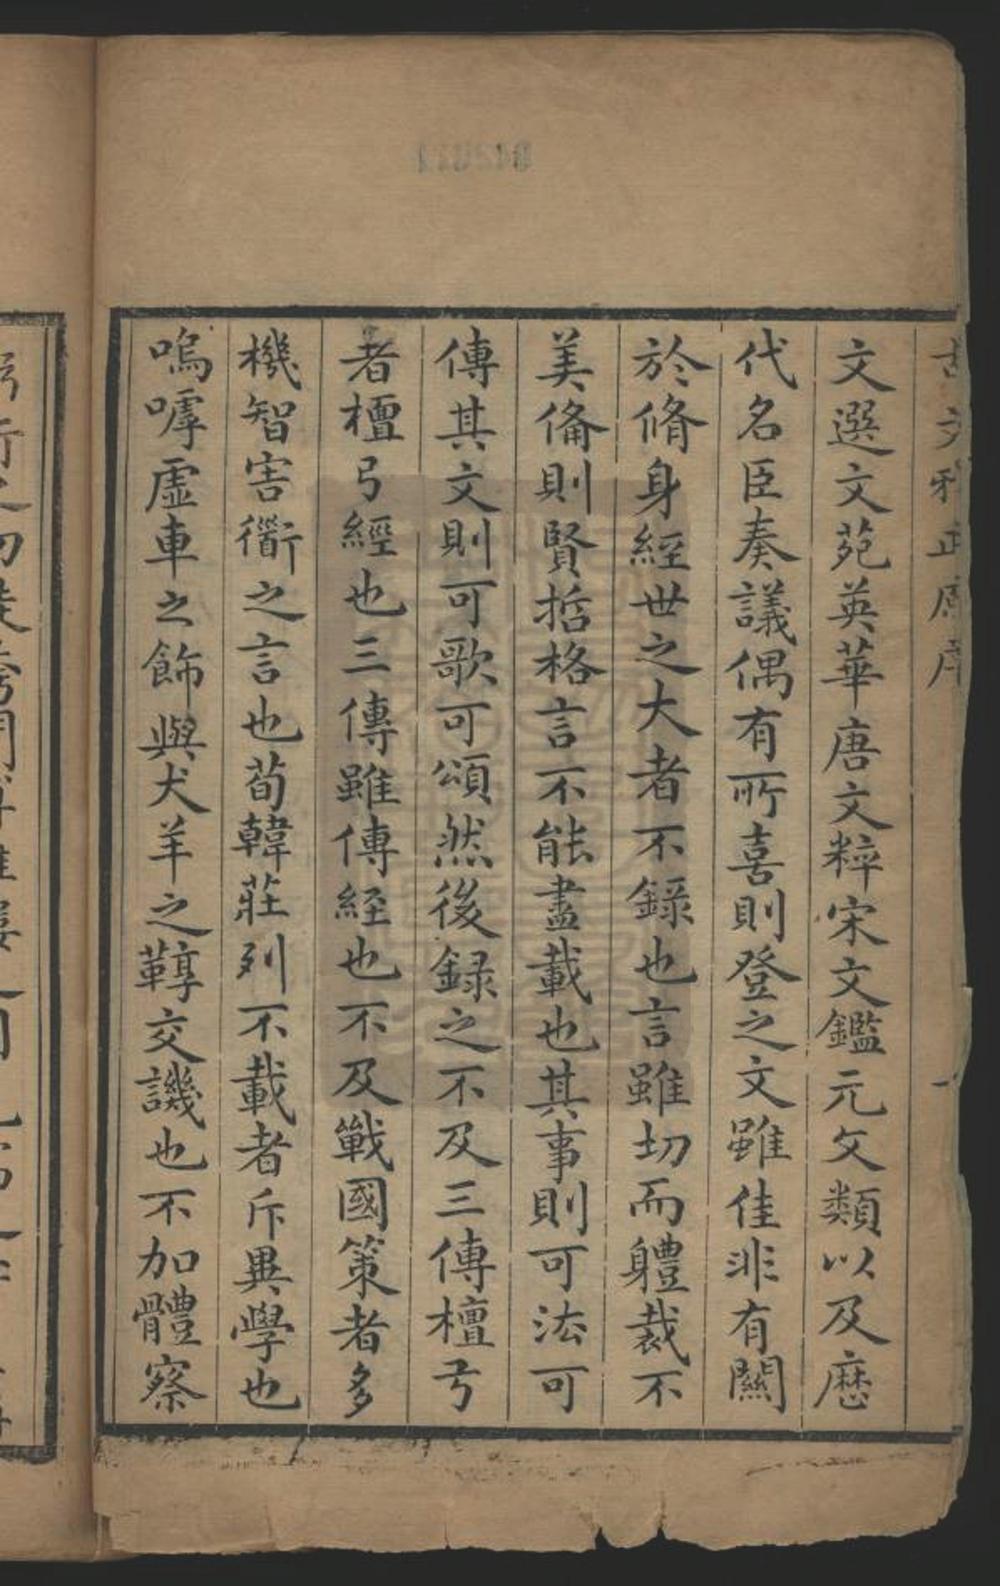 古文雅正原序
文選文苑英華唐文粹宋文鑑元文類以及歷
代名臣奏議偶有所喜則登之文雖佳非有關
於脩身經世之大者不錄也言雖切而軆裁不
美俻則賢哲格言不能盡載也其事則可法可
傳其文則可歌可頌然後録之不及三傳檀弓
者檀弓經也三傳雖傳経也不及戰國策者多
機智害衟之言也荀韓莊列不載者斥異學也
嗚嘑虛車之飾與犬羊之鞟交譏也不加體察